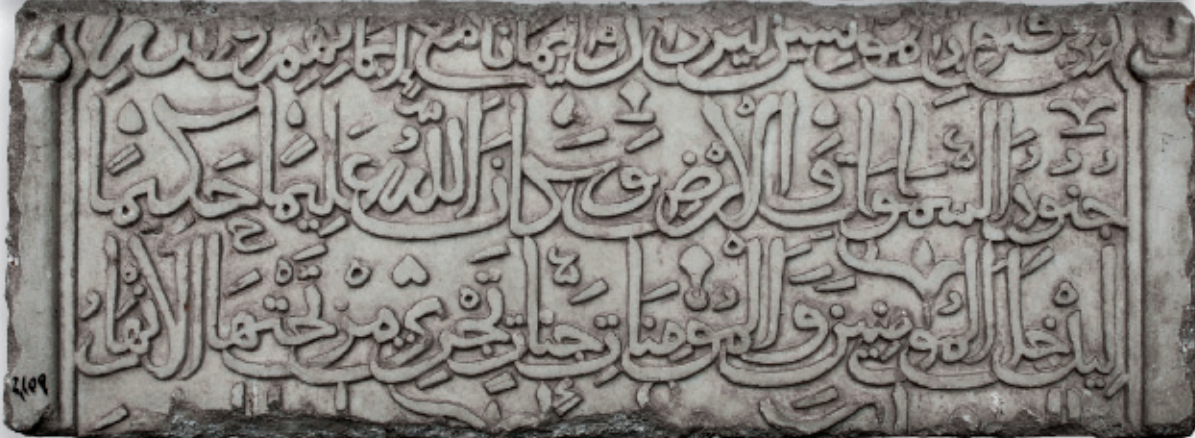 فى قلوب المؤمنين ليزدادوا إيمانا مع إيمانهم ولله
جنود السموات والارض وكان الله عليما حكيما
ليدخل المؤمنين والمؤمنات جنات تجرى من تحتها الانهار